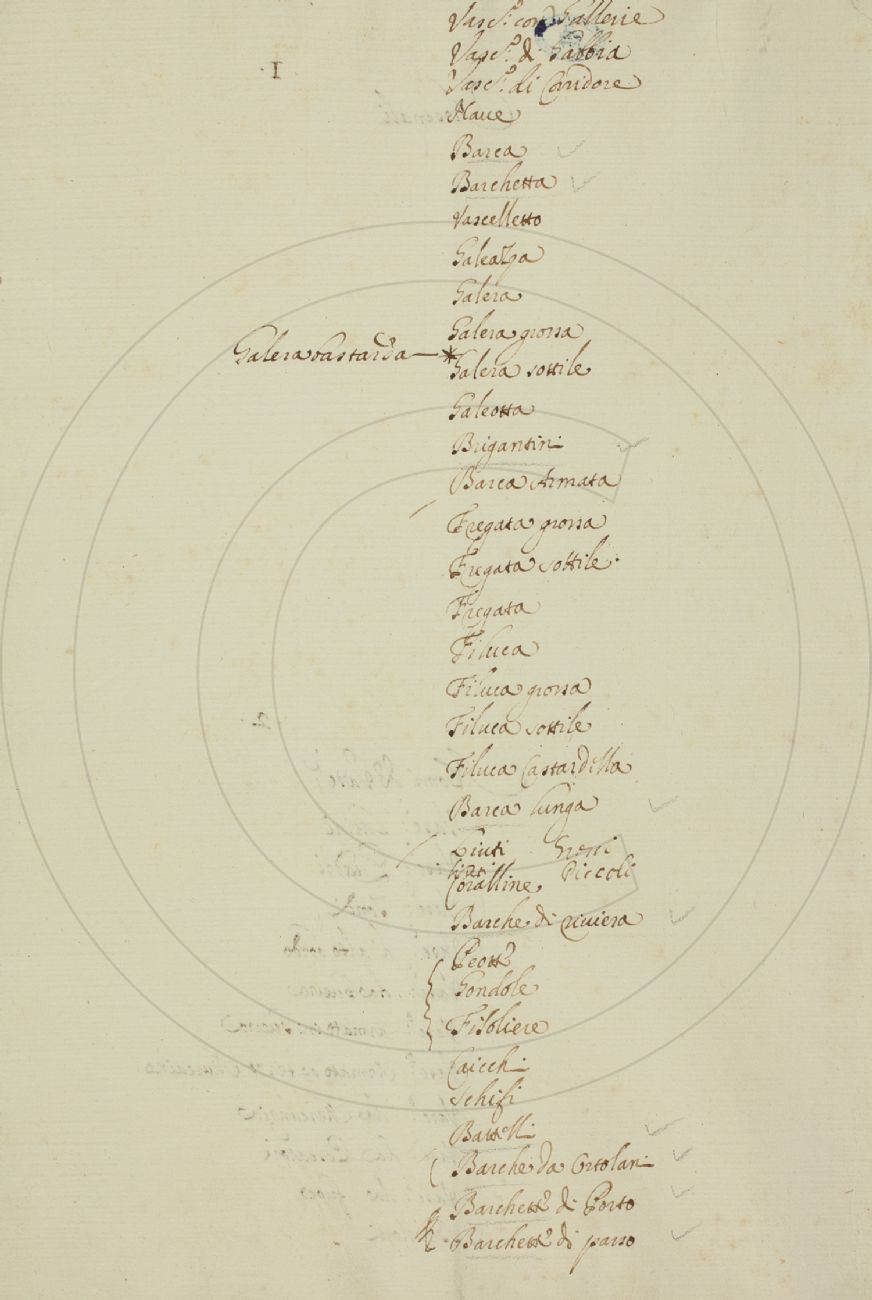 Vasc.º con Gallerie
Vasc.º di Gabbia
1.
Vasc.º di Coridore
Naue
Barca
Barchetta
Vascelletto
Galeazza
Galera
Galera grossa
Galera bastarda — *
Galera sottile
Galeotta
Brigantini
Barca Armata
Fregata grossa
Fregata sottile
Fregata
Filuca
Filuca grossa
2.
Filuca sottile
Filuca Castardella
Barca Lunga
Liuti Grossi
Coralline Piccoli
Barche di riuiera
Peotte
Gondole
Fisoliere
Caicchi
Schifi
Battelli
Barche da Ortolani
Barchette di Porto
Barchette di passo